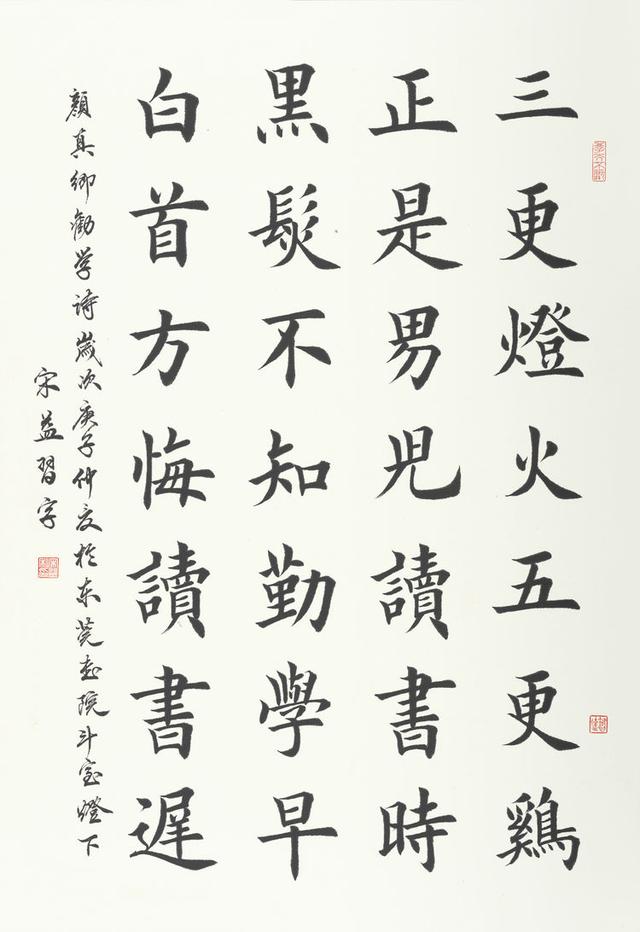 三更燈火五更鷄
正是男兒讀書時
黑髮不知勤學早
白首方悔讀書遲
顏真卿勸学詩歲次庚子仲夏於东莞画院斗室燈下
宋益習字